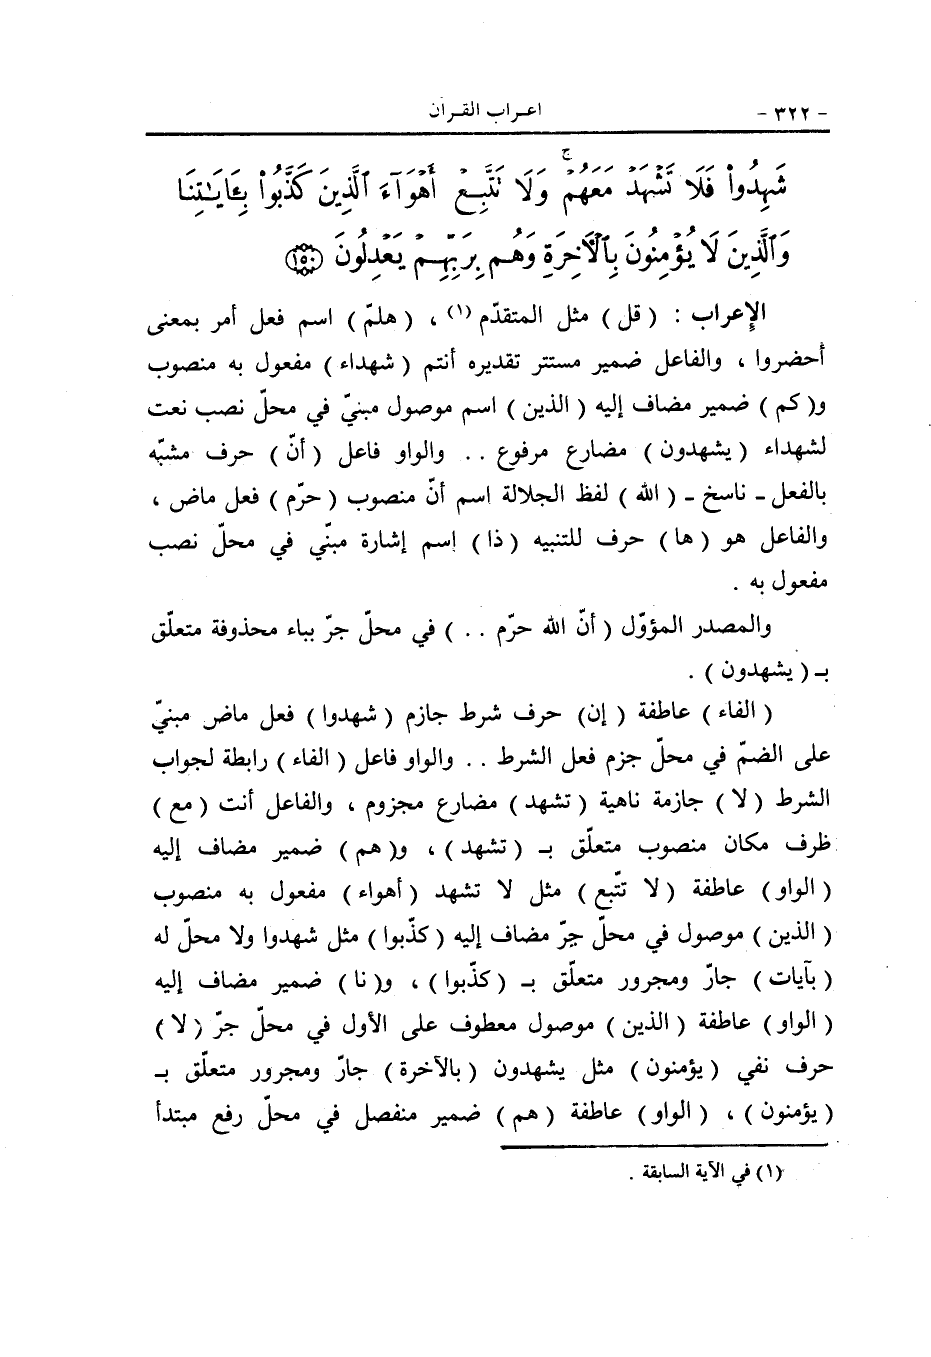 - ٣٢٢ - اعـراب القـرآن
شَهِدُوا۟ فَلَا تَشْهَدْ مَعَهُمْ ۚ وَلَا تَتَّبِعْ أَهْوَآءَ ٱلَّذِينَ كَذَّبُوا۟ بِـَٔايَـٰتِنَا
وَٱلَّذِينَ لَا يُؤْمِنُونَ بِٱلْـَٔاخِرَةِ وَهُم بِرَبِّهِمْ يَعْدِلُونَ ﴿١٥٠﴾
الإعراب : ( قل ) مثل المتقدّم (١) ، ( هلمّ ) اسم فعل أمر بمعنى
أحضروا ، والفاعل ضمير مستتر تقديره أنتم ( شهداء ) مفعول به منصوب
و( كم ) ضمير مضاف إليه ( الذين ) اسم موصول مبنيّ في محلّ نصب نعت
لشهداء ( يشهدون ) مضارع مرفوع . . والواو فاعل ( أنّ ) حرف مشبّه
بالفعل - ناسخ - ( الله ) لفظ الجلالة اسم أنّ منصوب ( حرّم ) فعل ماض ،
والفاعل هو ( ها ) حرف للتنبيه ( ذا ) اسم إشارة مبنّي في محلّ نصب
مفعول به .
والمصدر المؤوّل ( أنّ الله حرّم . . ) في محلّ جرّ بباء محذوفة متعلّق
بـ ( يشهدون ) .
( الفاء ) عاطفة ( إن ) حرف شرط جازم ( شهدوا ) فعل ماض مبنيّ
على الضمّ في محلّ جزم فعل الشرط . . والواو فاعل ( الفاء ) رابطة لجواب
الشرط ( لا ) جازمة ناهية ( تشهد ) مضارع مجزوم ، والفاعل أنت ( مع )
ظرف مكان منصوب متعلّق بـ ( تشهد ) ، و( هم ) ضمير مضاف إليه
( الواو ) عاطفة ( لا تتّبع ) مثل لا تشهد ( أهواء ) مفعول به منصوب
( الذين ) موصول في محلّ جرّ مضاف إليه ( كذّبوا ) مثل شهدوا ولا محلّ له
( بآيات ) جارّ ومجرور متعلّق بـ ( كذّبوا ) ، و( نا ) ضمير مضاف إليه
( الواو ) عاطفة ( الذين ) موصول معطوف على الأول في محلّ جرّ ( لا )
حرف نفي ( يؤمنون ) مثل يشهدون ( بالآخرة ) جارّ ومجرور متعلّق بـ
( يؤمنون ) ، ( الواو ) عاطفة ( هم ) ضمير منفصل في محلّ رفع مبتدأ
(١) في الآية السابقة .